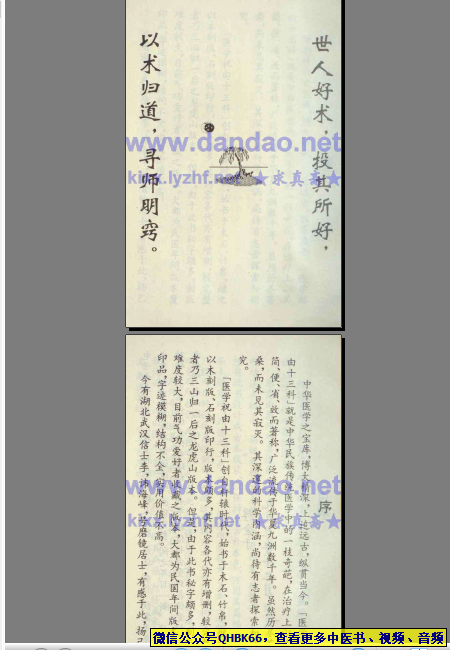 世人好术，投其所好，
以术归道，寻师明窍。
www.dandao.net
kixx.lyzhf.net ★求真斋★
序
中华医学之宝库，博大精深，上迄远古，纵贯当今。「医
由十三科」就是中华民族传统医学中的一枝奇葩，在治疗上
简、便、省、效而著称，广泛流传于华夏九洲数千年。虽然历
桑，而未见其寂灭。其深邃的科学内涵，尚待有志者探索
究。
「医学祝由十三科」创于轩辕时代，始书于木石、竹帛，
以木刻版、石刻版印行，版本颇多，其内容各代亦有增删，较
者乃三山归一后之龙虎山版本。但是，由于此书秘字颇多，
难度较大，目前气功爱好者收藏之版本，大都为民国年间版
印品，字迹模糊，结构不全，实用价值不高。
今有湖北武汉信士李
海峰，号磨镜居士，有感于此，扬己
www.dandao.net
微信公众号QHBK66，查看更多中医书、视频、音频